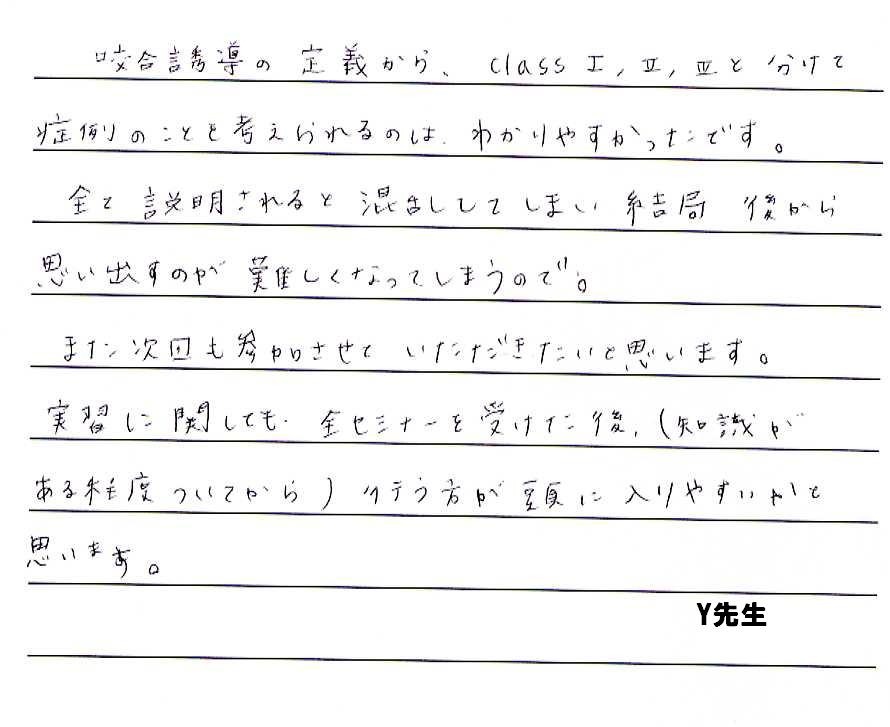 咬合誘導の定義から、class I, II, IIIと分けて
症例のことを考えられるのは、わかりやすかったです。
全て説明されると混乱してしまい結局後から
思い出すのが難しくなってしまうので。
また次回も参加させていただきたいと思います。
実習に関しても、全セミナーを受けた後、(知識が
ある程度ついてから)行う方が頭に入りやすいかと
思います。
Y先生